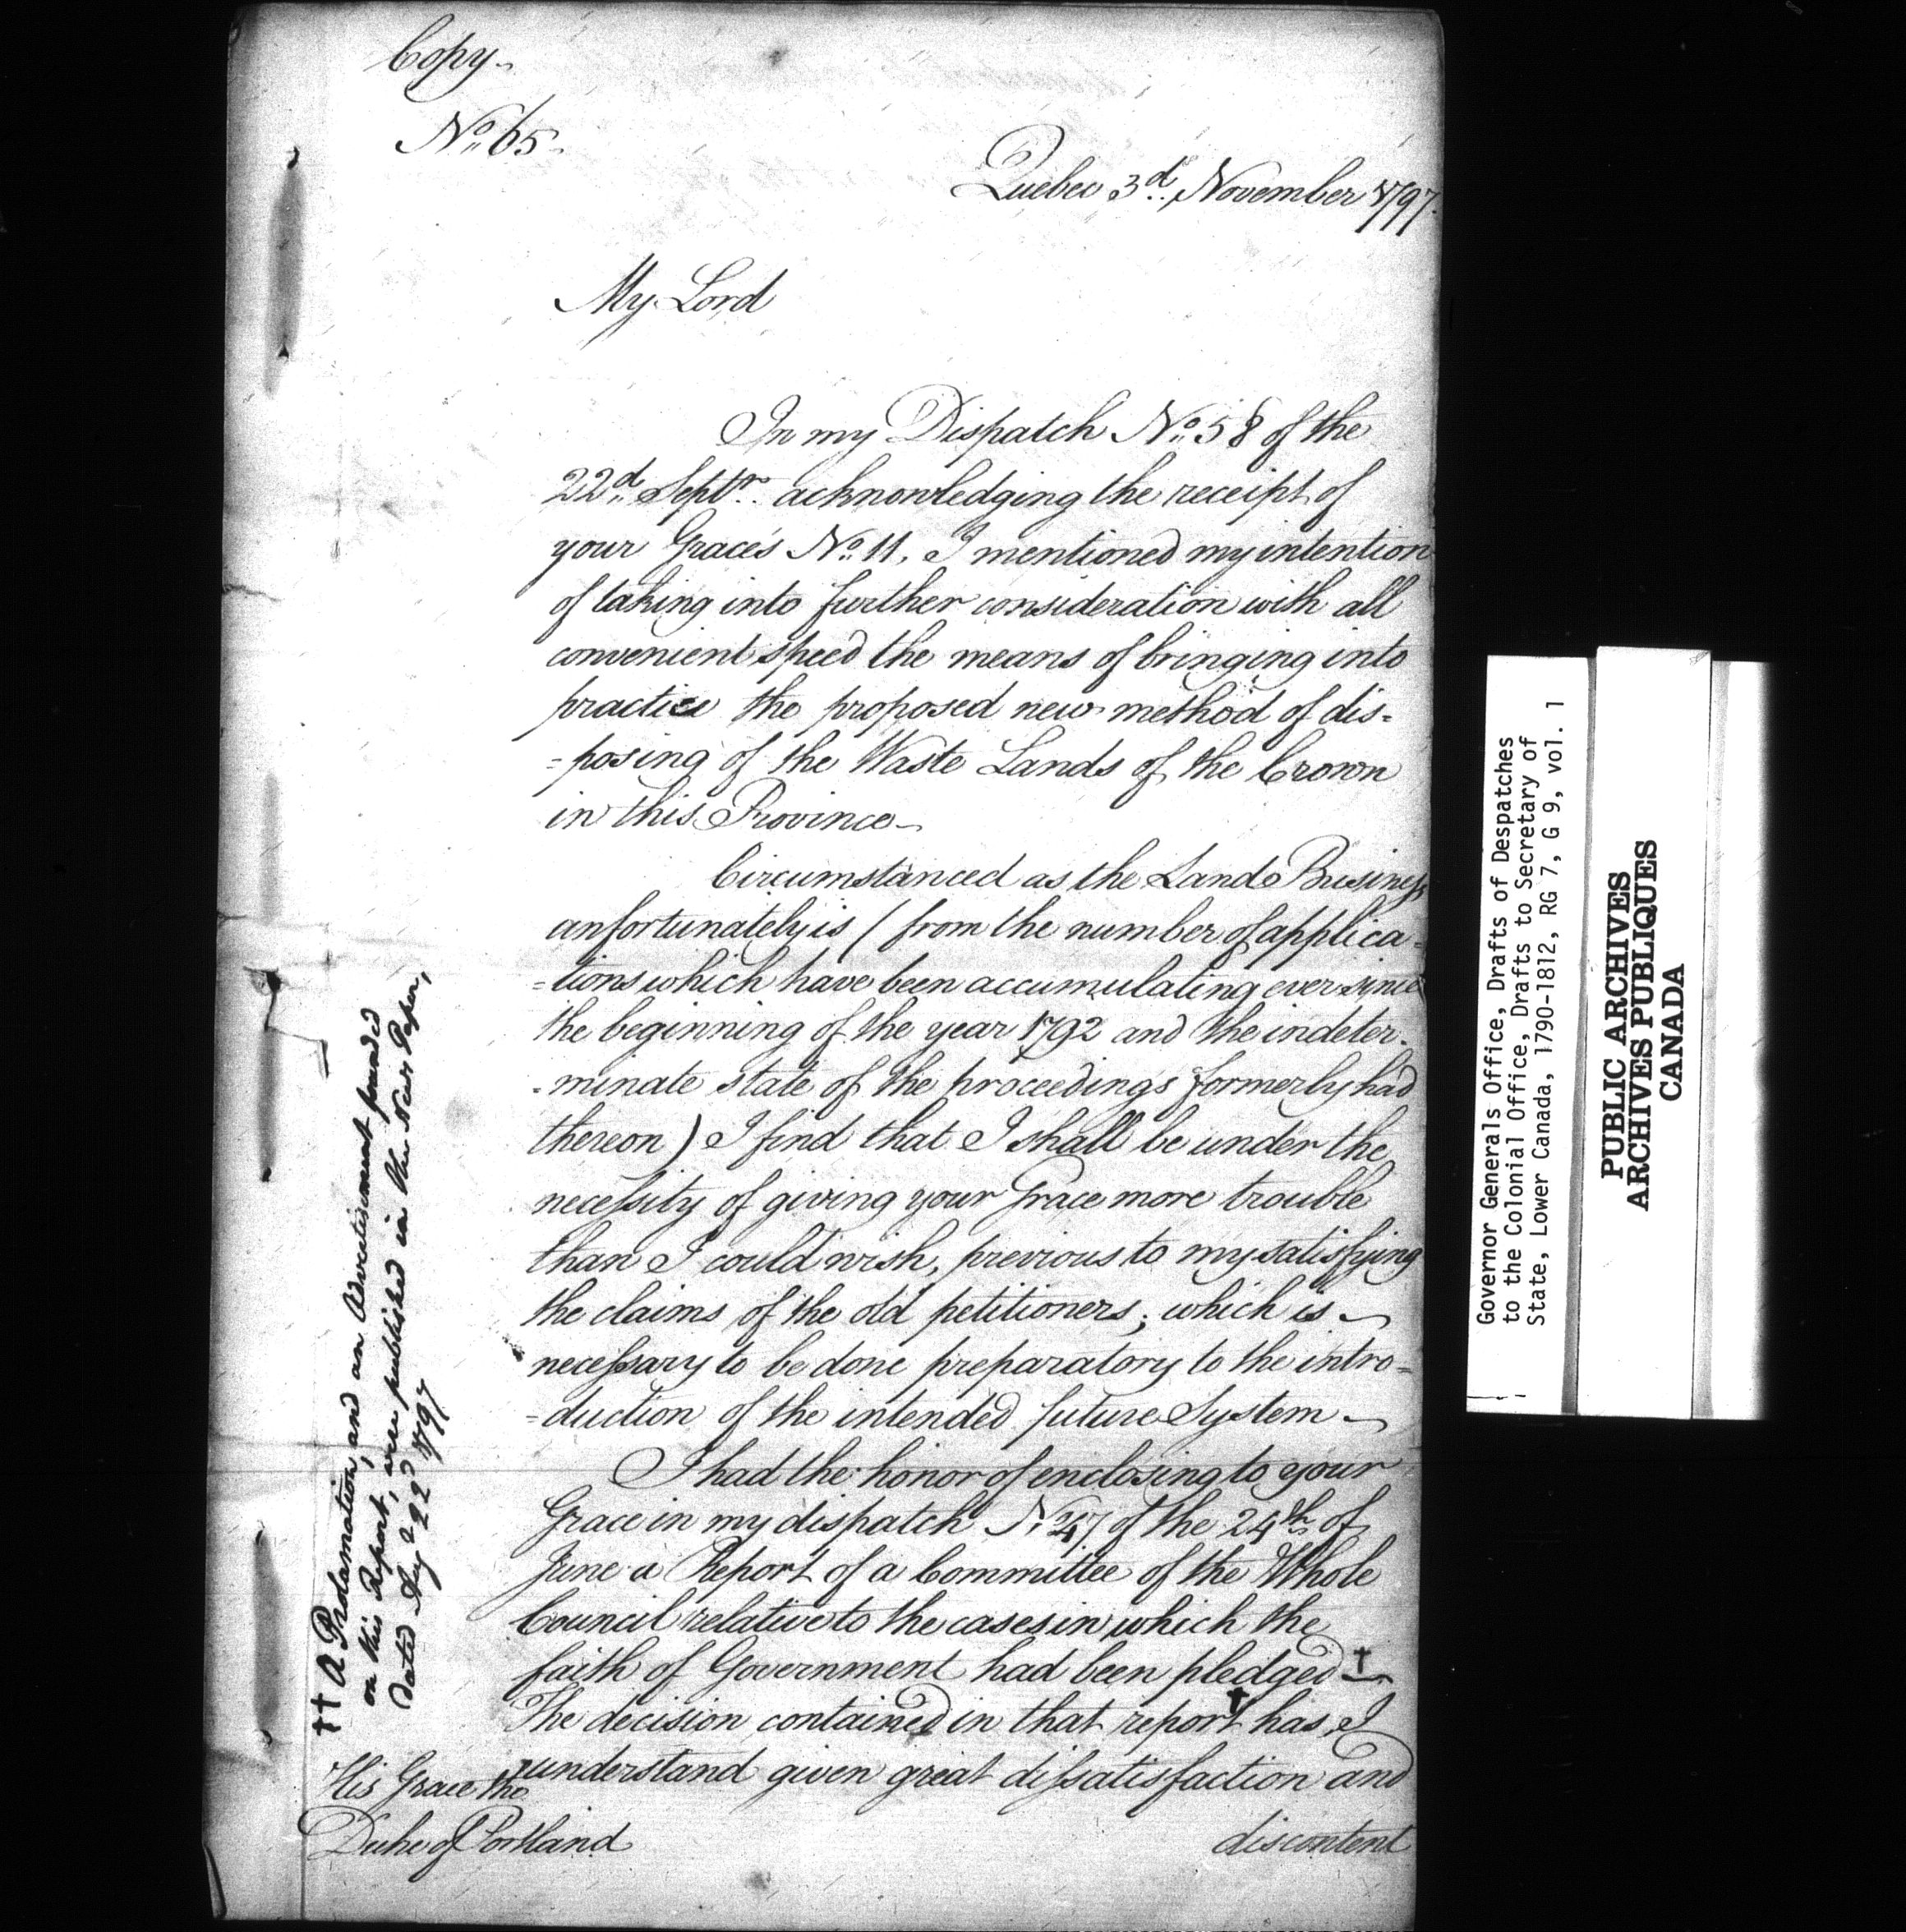 Copy
No. 65
Quebec 3d. November 1797.
My Lord
In my Dispatch No. 58 of the
22d. Septr. acknowledging the receipt of
your Grace's No. 11, I mentioned my intention
of taking into further consideration with all
convenient speed the means of bringing into
practice the proposed new method of dis=
=posing of the Waste Lands of the Crown
in this Province
Circumstanced as the Land Business
unfortunately is (from the number of applica=
=tions which have been accumulating ever since
the beginning of the year 1792 and the indeter-
-minate state of the proceedings formerly had
thereon) I find that I shall be under the
necessity of giving your Grace more trouble
than I could wish, previous to my satisfying
the claims of the old petitioners; which is
necessary to be done preparatory to the intro=
=duction of the intended future System
I had the honor of enclosing to your
Grace in my dispatch No. 47 of the 24th of
June a Report of a Committee of the Whole
Council relative to the cases in which the
faith of Government had been pledged †
The decision contained in that report † has, I
understand given great dissatisfaction and
discontent
His Grace the
Duke of Portland
†† A Proclamation, and an Advertisement founded
on this Report, were published in the News Paper,
dated 22d 1797
Governor Generals Office, Drafts of Despatches
to the Colonial Office, Drafts to Secretary of
State, Lower Canada, 1790-1812, RG 7, G 9, vol. 1
PUBLIC ARCHIVES
ARCHIVES PUBLIQUES
CANADA